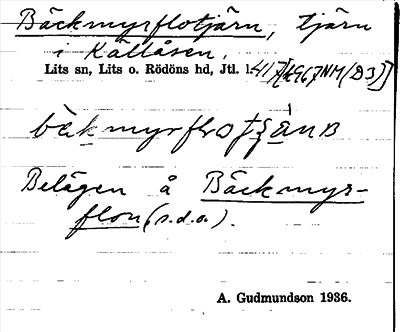 Bäckmyrflotjärn, tjärn
i Kallåsen.
Lits sn, Lits o. Rödöns hd, Jtl.
Belägen å Bäckmyr-
flon (s.d.o.).
A. Gudmundson 1936.